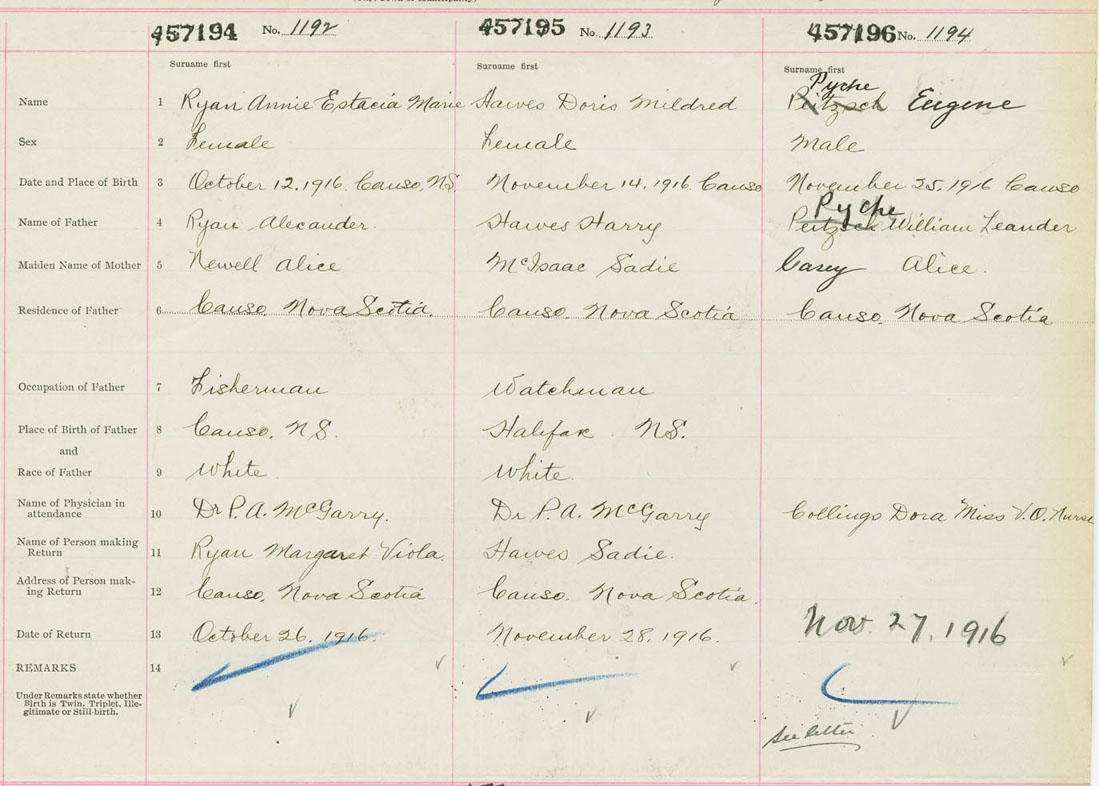 457194 No. 1192 457195 No. 1193 457196 No. 1194
Surname first Surname first Surname first
Pyche
Name 1 Ryan Annie Estacia Marie Hawes Doris Mildred Peitzsch Eugene
Sex 2 Female Female Male
Date and Place of Birth 3 October 12, 1916. Canso, N.S. November 14, 1916. Canso November 25, 1916 Canso
Pyche
Name of Father 4 Ryan Alexander. Hawes Harry Peitzsch William Leander
Maiden Name of Mother 5 Newell Alice McIsaac Sadie Casey Alice.
Residence of Father 6 Canso, Nova Scotia. Canso, Nova Scotia Canso, Nova Scotia
Occupation of Father 7 Fisherman Watchman
Place of Birth of Father 8 Canso, N.S. Halifax N.S.
and
Race of Father 9 White. White.
Name of Physician in
attendance 10 Dr P. A. McGarry. Dr P. A. McGarry Collings Dora Miss V.O. Nurse
Name of Person making
Return 11 Ryan Margaret Viola. Hawes Sadie.
Address of Person mak-
ing Return 12 Canso, Nova Scotia Canso, Nova Scotia.
Date of Return 13 October 26, 1916. November 28, 1916. Nov. 27, 1916
REMARKS 14
Under Remarks state whether
Birth is Twin, Triplet, Ille-
gitimate or Still-birth.
See letter